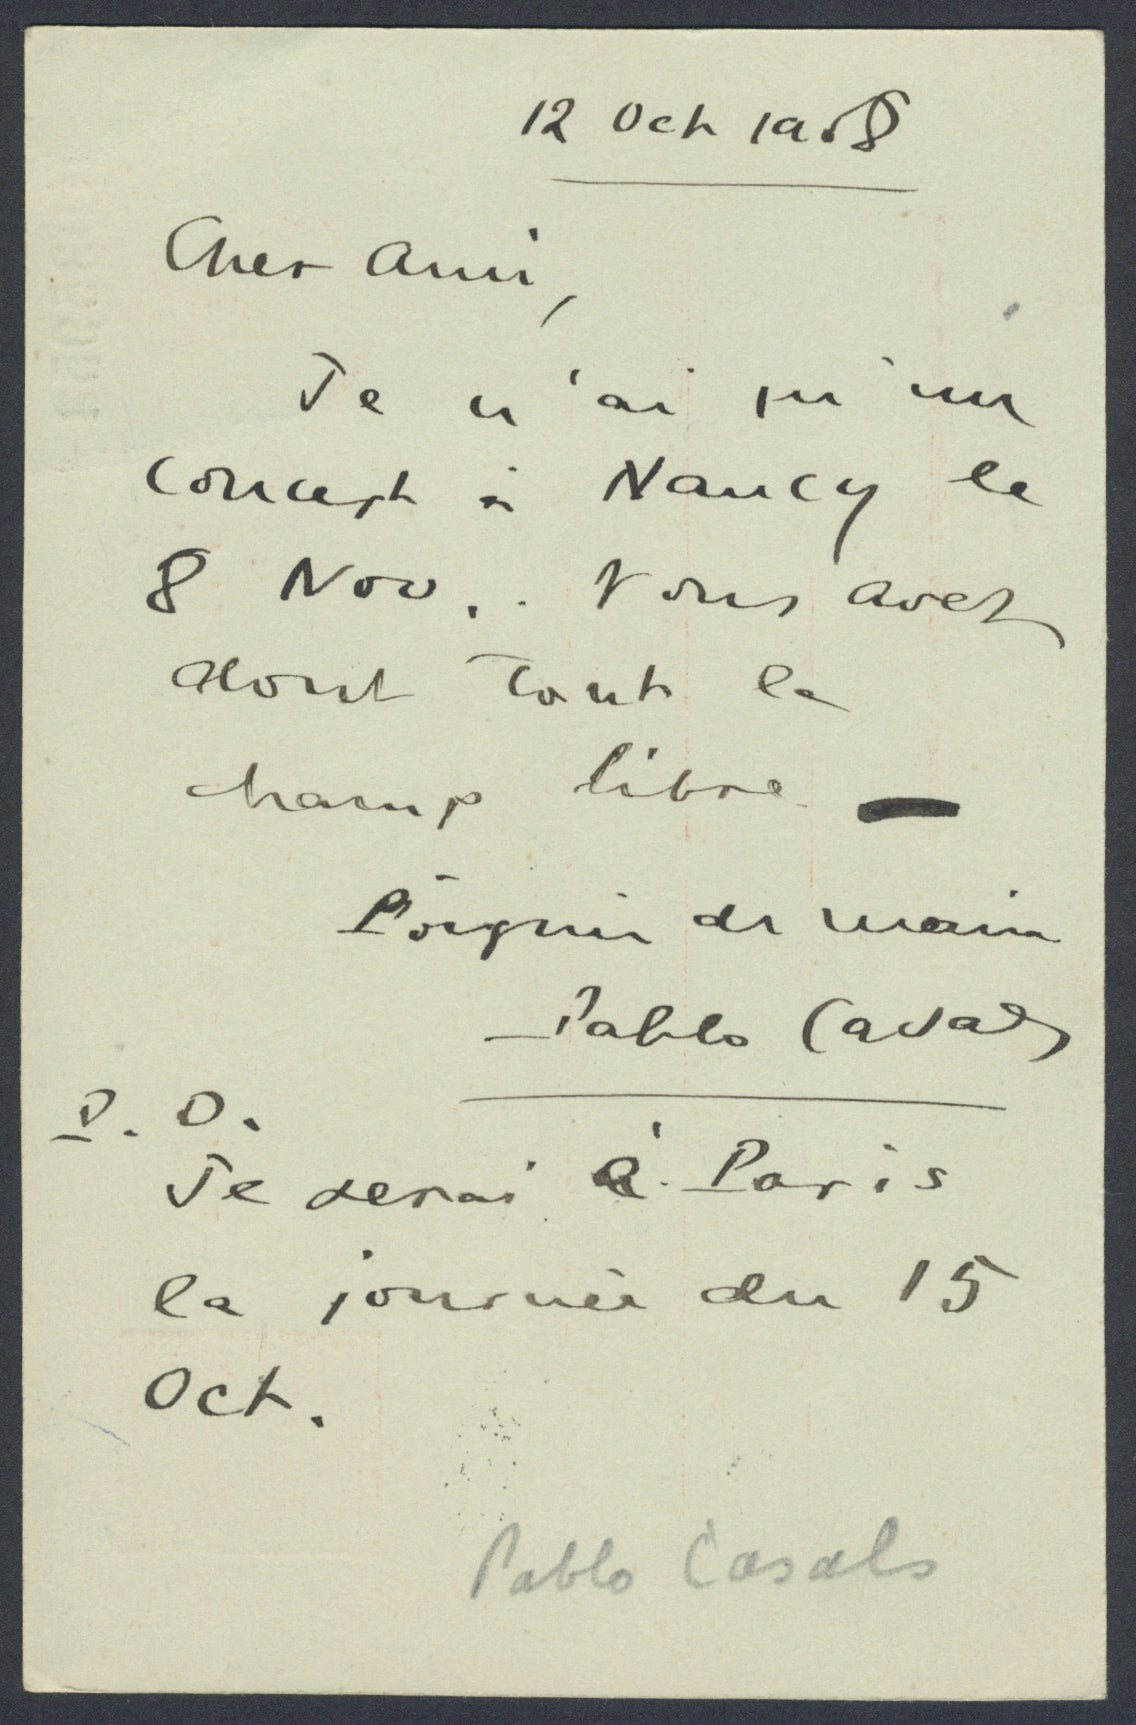 12 Oct 1908
Cher ami,
Je n'ai qu'un
concert à Nancy le
8 Nov.. Vous avez
dont tout le
champ libre —
Poignée de main
Pablo Casals
P. S.
Je serai à Paris
la journée du 15
Oct.
Pablo Casals